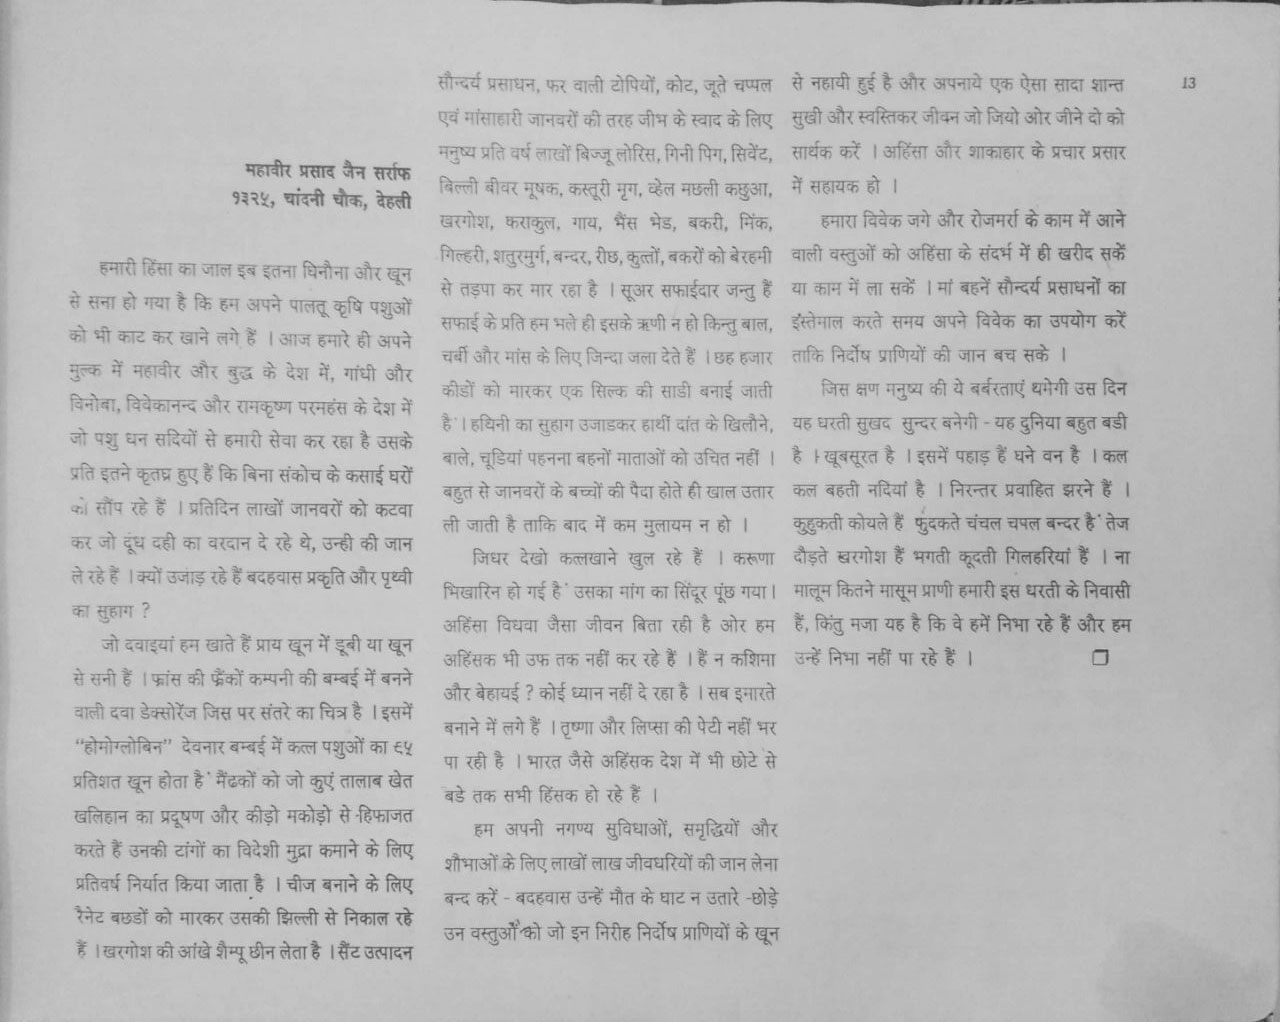 महावीर प्रसाद जैन सर्राफ
१३२५, चांदनी चौक, देहली
हमारी हिंसा का जाल इब इतना घिनौना और खून
से सना हो गया है कि हम अपने पालतू कृषि पशुओं
को भी काट कर खाने लगे हैं । आज हमारे ही अपने
मुल्क में महावीर और बुद्ध के देश में, गांधी और
विनोबा, विवेकानन्द और रामकृष्ण परमहंस के देश में
जो पशु धन सदियों से हमारी सेवा कर रहा है उसके
प्रति इतने कृतघ्र हुए हैं कि बिना संकोच के कसाई घरों
को सौंप रहे हैं । प्रतिदिन लाखों जानवरों को कटवा
कर जो दूंध दही का वरदान दे रहे थे, उन्ही की जान
ले रहे हैं । क्यों उजाड़ रहे हैं बदहवास प्रकृति और पृथ्वी
का सुहाग ?
जो दवाइयां हम खाते हैं प्राय खून में डूबी या खून
से सनी हैं । फ्रांस की फ्रैंकों कम्पनी की बम्बई में बनने
वाली दवा डेक्सोरेंज जिस पर संतरे का चित्र है । इसमें
“होमोग्लोबिन” देवनार बम्बई में कत्ल पशुओं का ९५
प्रतिशत खून होता है मैंढकों को जो कुएं तालाब खेत
खलिहान का प्रदूषण और कीड़ो मकोड़ो से हिफाजत
करते हैं उनकी टांगों का विदेशी मुद्रा कमाने के लिए
प्रतिवर्ष निर्यात किया जाता है । चीज बनाने के लिए
रैनेट बछडों को मारकर उसकी झिल्ली से निकाल रहे
हैं । खरगोश की आंखे शैम्पू छीन लेता है । सैंट उत्पादन
सौन्दर्य प्रसाधन, फर वाली टोपियों, कोट, जूते चप्पल
एवं मांसाहारी जानवरों की तरह जीभ के स्वाद के लिए
मनुष्य प्रति वर्ष लाखों बिज्जू लोरिस, गिनी पिग, सिवेंट,
बिल्ली बीवर मूषक, कस्तूरी मृग, व्हेल मछली कछुआ,
खरगोश, कराकुल, गाय, भैंस भेड, बकरी, मिंक,
गिल्हरी, शतुरमुर्ग, बन्दर, रीछ, कुत्तों, बकरों को बेरहमी
से तड़पा कर मार रहा है । सूअर सफाईदार जन्तु हैं
सफाई के प्रति हम भले ही इसके ऋणी न हो किन्तु बाल,
चर्बी और मांस के लिए जिन्दा जला देते हैं । छह हजार
कीडों को मारकर एक सिल्क की साडी बनाई जाती
है । हथिनी का सुहाग उजाडकर हाथीं दांत के खिलौने,
बाले, चूडियां पहनना बहनों माताओं को उचित नहीं ।
बहुत से जानवरों के बच्चों की पैदा होते ही खाल उतार
ली जाती है ताकि बाद में कम मुलायम न हो ।
जिधर देखो कत्लखाने खुल रहे हैं । करूणा
भिखारिन हो गई है उसका मांग का सिंदूर पूंछ गया ।
अहिंसा विधवा जैसा जीवन बिता रही है ओर हम
अहिंसक भी उफ तक नहीं कर रहे हैं । हैं न कशिमा
और बेहायई ? कोई ध्यान नहीं दे रहा है । सब इमारते
बनाने में लगे हैं । तृष्णा और लिप्सा की पेटी नहीं भर
पा रही है । भारत जैसे अहिंसक देश में भी छोटे से
बडे तक सभी हिंसक हो रहे हैं ।
हम अपनी नगण्य सुविधाओं, समृद्धियों और
शौभाओं के लिए लाखों लाख जीवधरियों की जान लेना
बन्द करें - बदहवास उन्हें मौत के घाट न उतारे -छोड़े
उन वस्तुओं को जो इन निरीह निर्दोष प्राणियों के खून
से नहायी हुई है और अपनाये एक ऐसा सादा शान्त
सुखी और स्वस्तिकर जीवन जो जियो ओर जीने दो को
सार्थक करें । अहिंसा और शाकाहार के प्रचार प्रसार
में सहायक हो ।
हमारा विवेक जगे और रोजमर्रा के काम में आने
वाली वस्तुओं को अहिंसा के संदर्भ में ही खरीद सकें
या काम में ला सकें । मां बहनें सौन्दर्य प्रसाधनों का
इंस्तेमाल करते समय अपने विवेक का उपयोग करें
ताकि निर्दोष प्राणियों की जान बच सके ।
जिस क्षण मनुष्य की ये बर्बरताएं थमेगी उस दिन
यह धरती सुखद सुन्दर बनेगी - यह दुनिया बहुत बडी
है । खूबसूरत है । इसमें पहाड़ हैं घने वन है । कल
कल बहती नदियां है । निरन्तर प्रवाहित झरने हैं ।
कुहुकती कोयले हैं फुदकते चंचल चपल बन्दर है तेज
दौड़ते खरगोश हैं भगती कूदती गिलहरियां हैं । ना
मालूम कितने मासूम प्राणी हमारी इस धरती के निवासी
हैं, किंतु मजा यह है कि वे हमें निभा रहे हैं और हम
उन्हें निभा नहीं पा रहे हैं । ❐
13